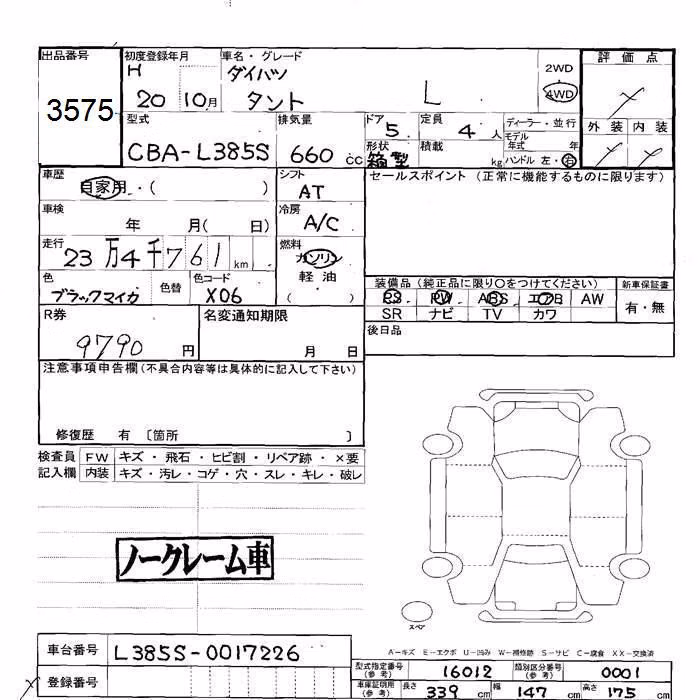 出品番号 初度登録年月 車名・グレード 評価点
3575 H 20 10月 ダイハツ タント L 2WD 4WD
外装 内装
型式 排気量 ドア 定員 ディーラー・並行
CBA-L385S 660 cc 5 4人 モデル年式 年
形状 箱型 積載 kg ハンドル 左・右
車歴 自家用・( ) シフト AT セールスポイント(正常に機能するものに限ります)
車検 年 月( 日) 冷房 A/C
走行 23万4千761km 燃料 ガソリン 軽油 ( )
色 ブラックマイカ 色替 色コード X06
装備品(純正品に限り○をつけてください) 新車保証書
PS PW ABS エアB AW 有・無
SR ナビ TV カワ
R券 9790円 名変通知期限 月 日 後日品
注意事項申告欄(不具合内容等は具体的に記入して下さい)
修復歴 有 〔箇所 〕
検査員 FW キズ・飛石・ヒビ割・リペア跡・×要
記入欄 内装 キズ・汚レ・コゲ・穴・スレ・キレ・破レ
ノークレーム車
スペア
A-キズ E-エクボ U-凹み W-補修跡 S-サビ C-腐食 XX-交換済
車台番号 L385S-0017226
型式指定番号(参考) 16012 類別区分番号(参考) 0001
登録番号
車庫証明用(参考) 長さ 339cm 幅 147cm 高さ 175cm